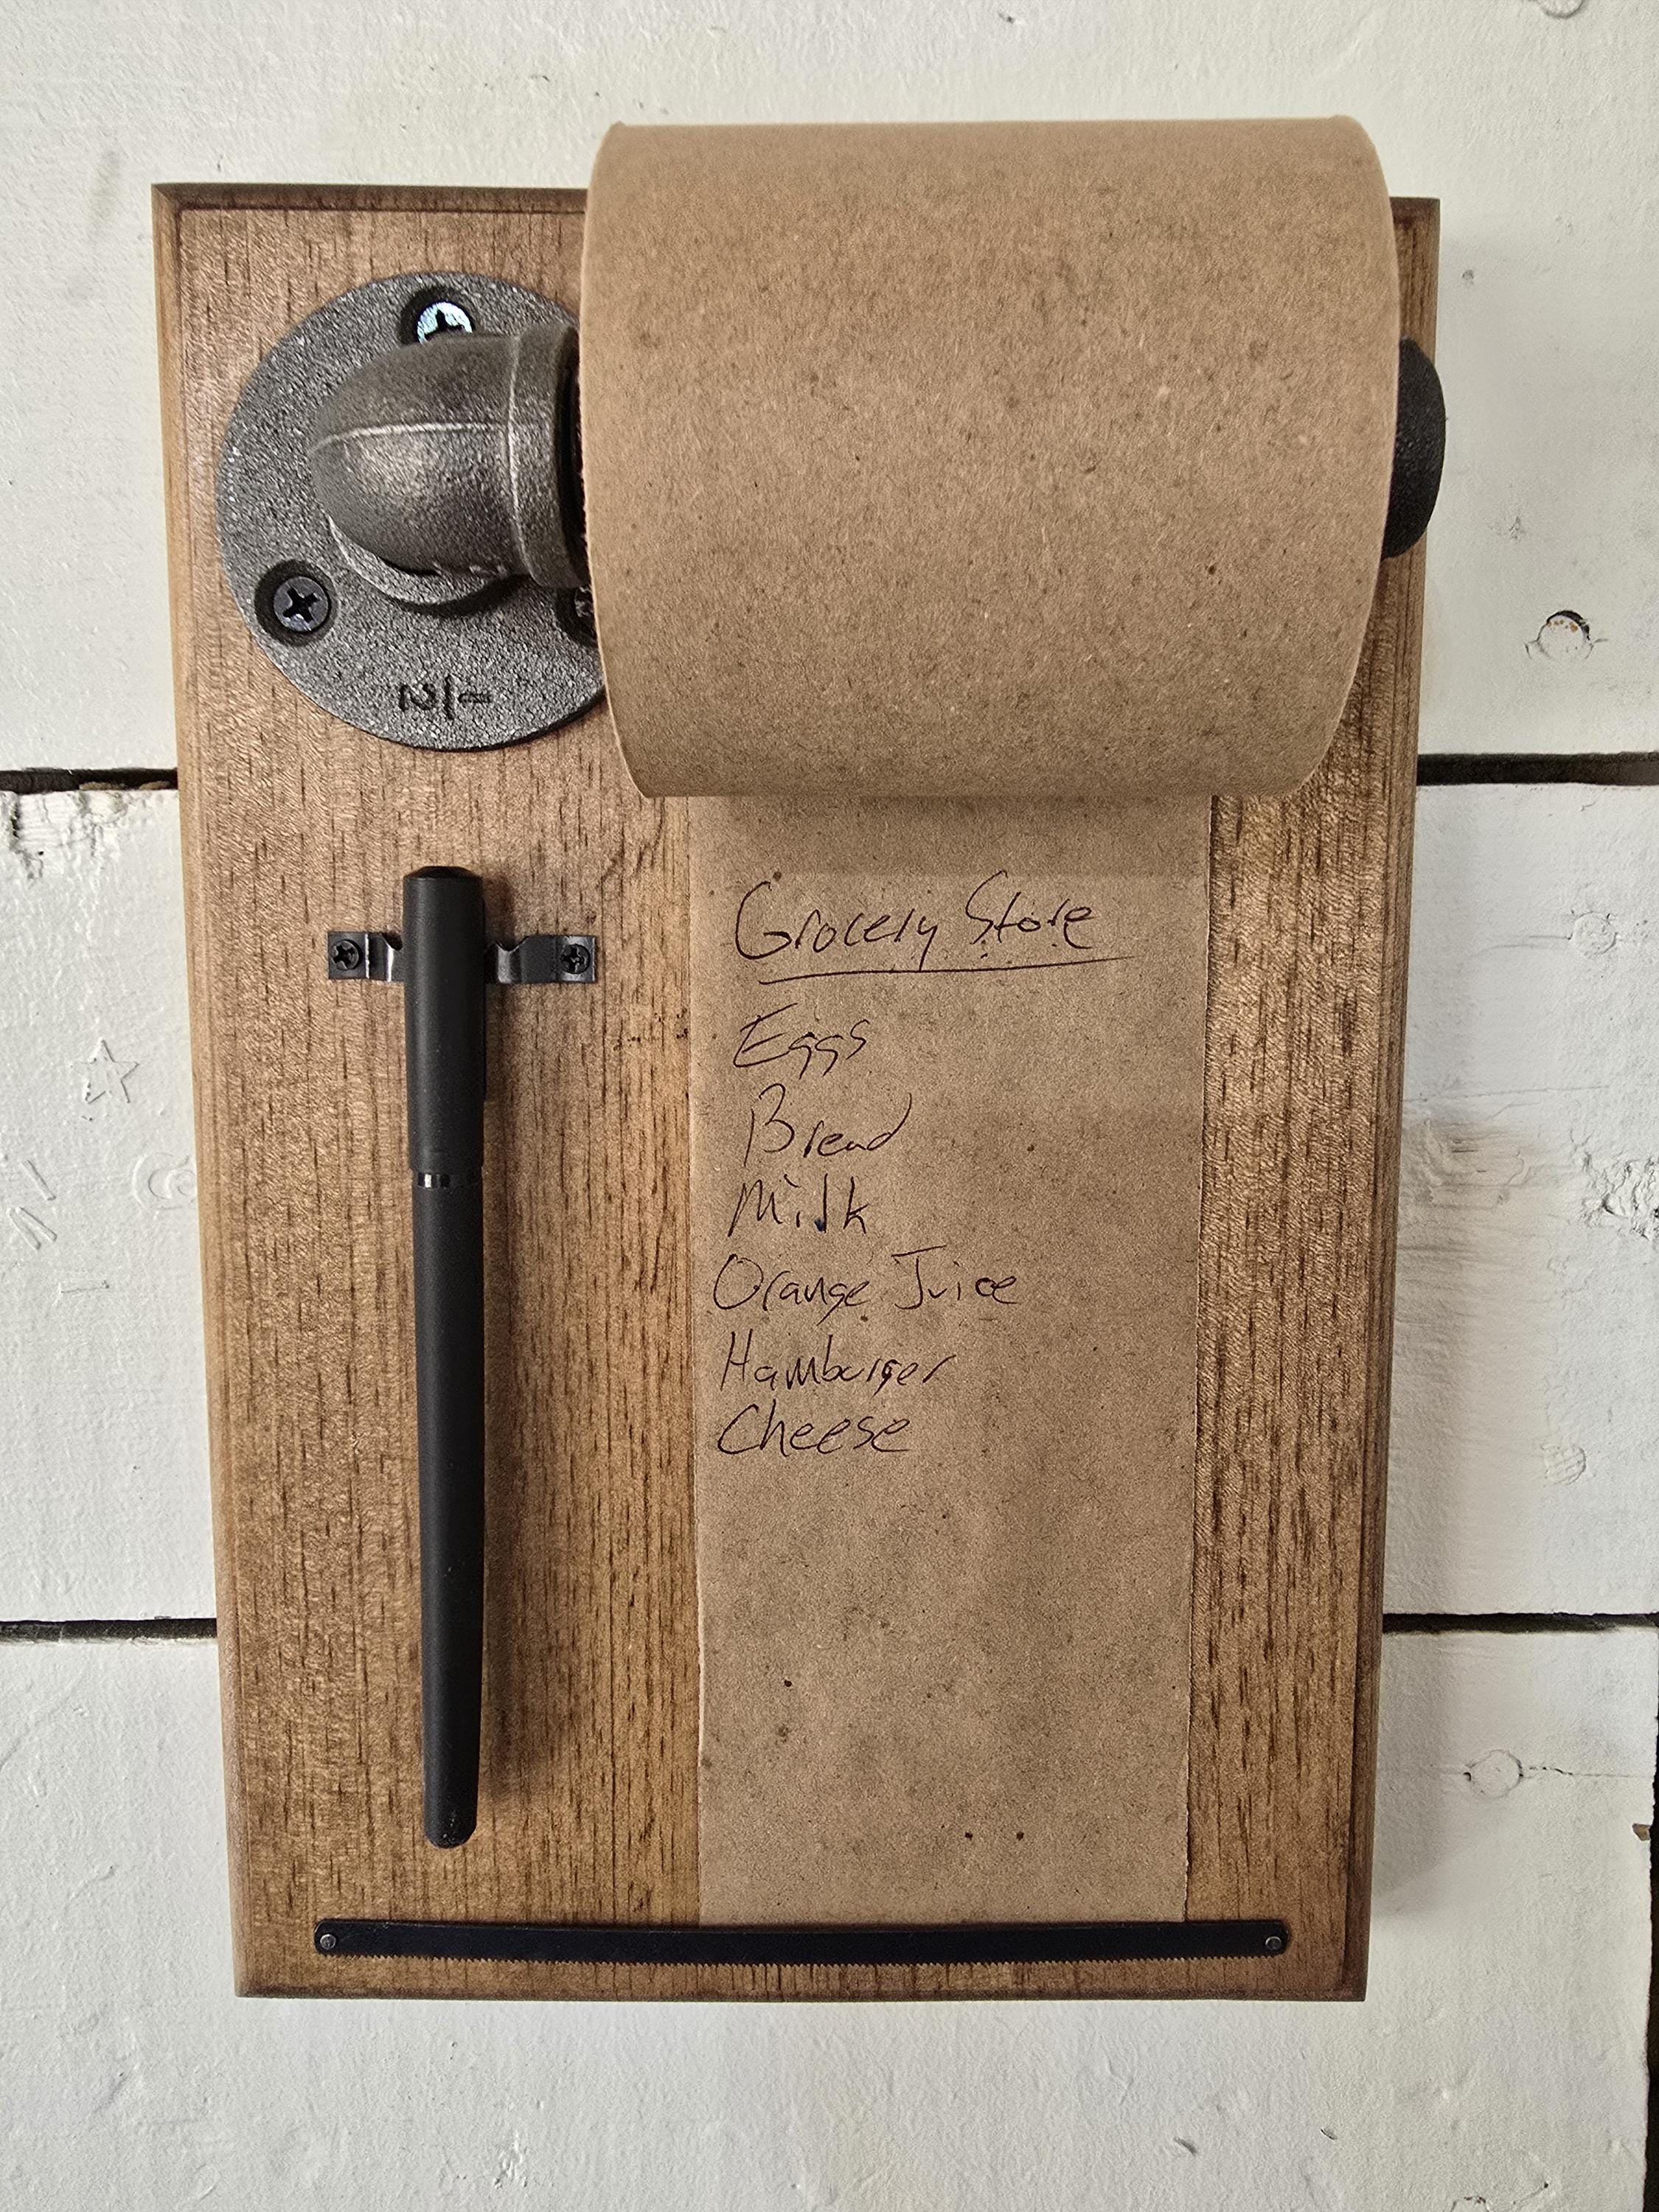 Grocery Store
Eggs
Bread
Milk
Orange Juice
Hamburger
Cheese